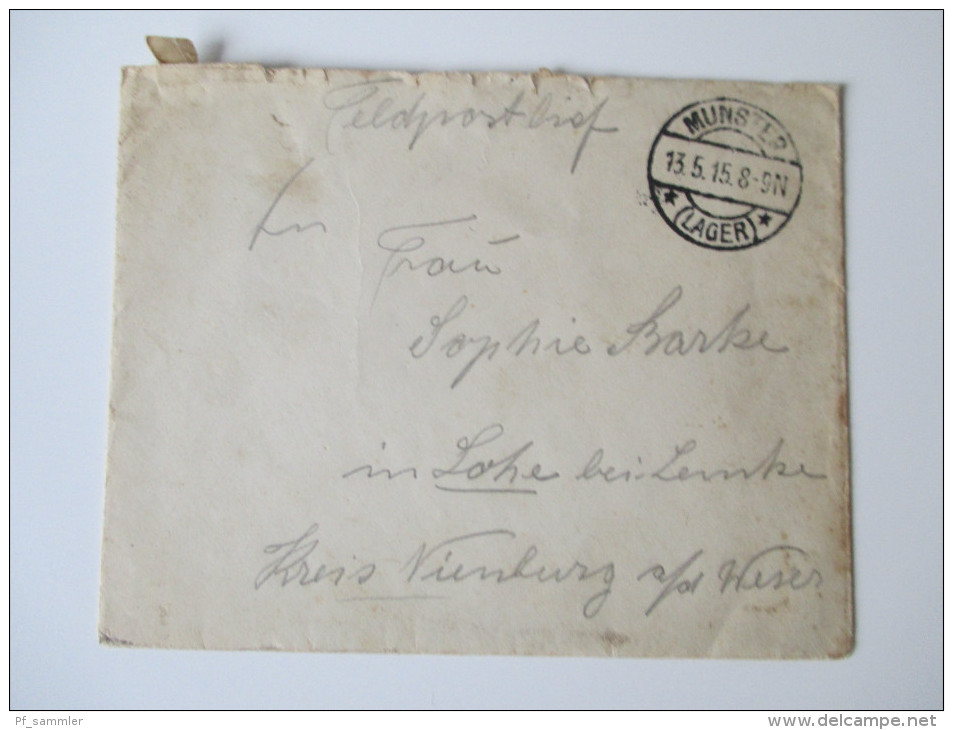 Feldpostbrief
MUNSTER
13.5.15.8-9N
* (LAGER) *
An
Frau
Sophie Barke
in Lohe bei Lemke
Kreis Nienburg a/d Weser
Pf_sammler
www.delcampe.net